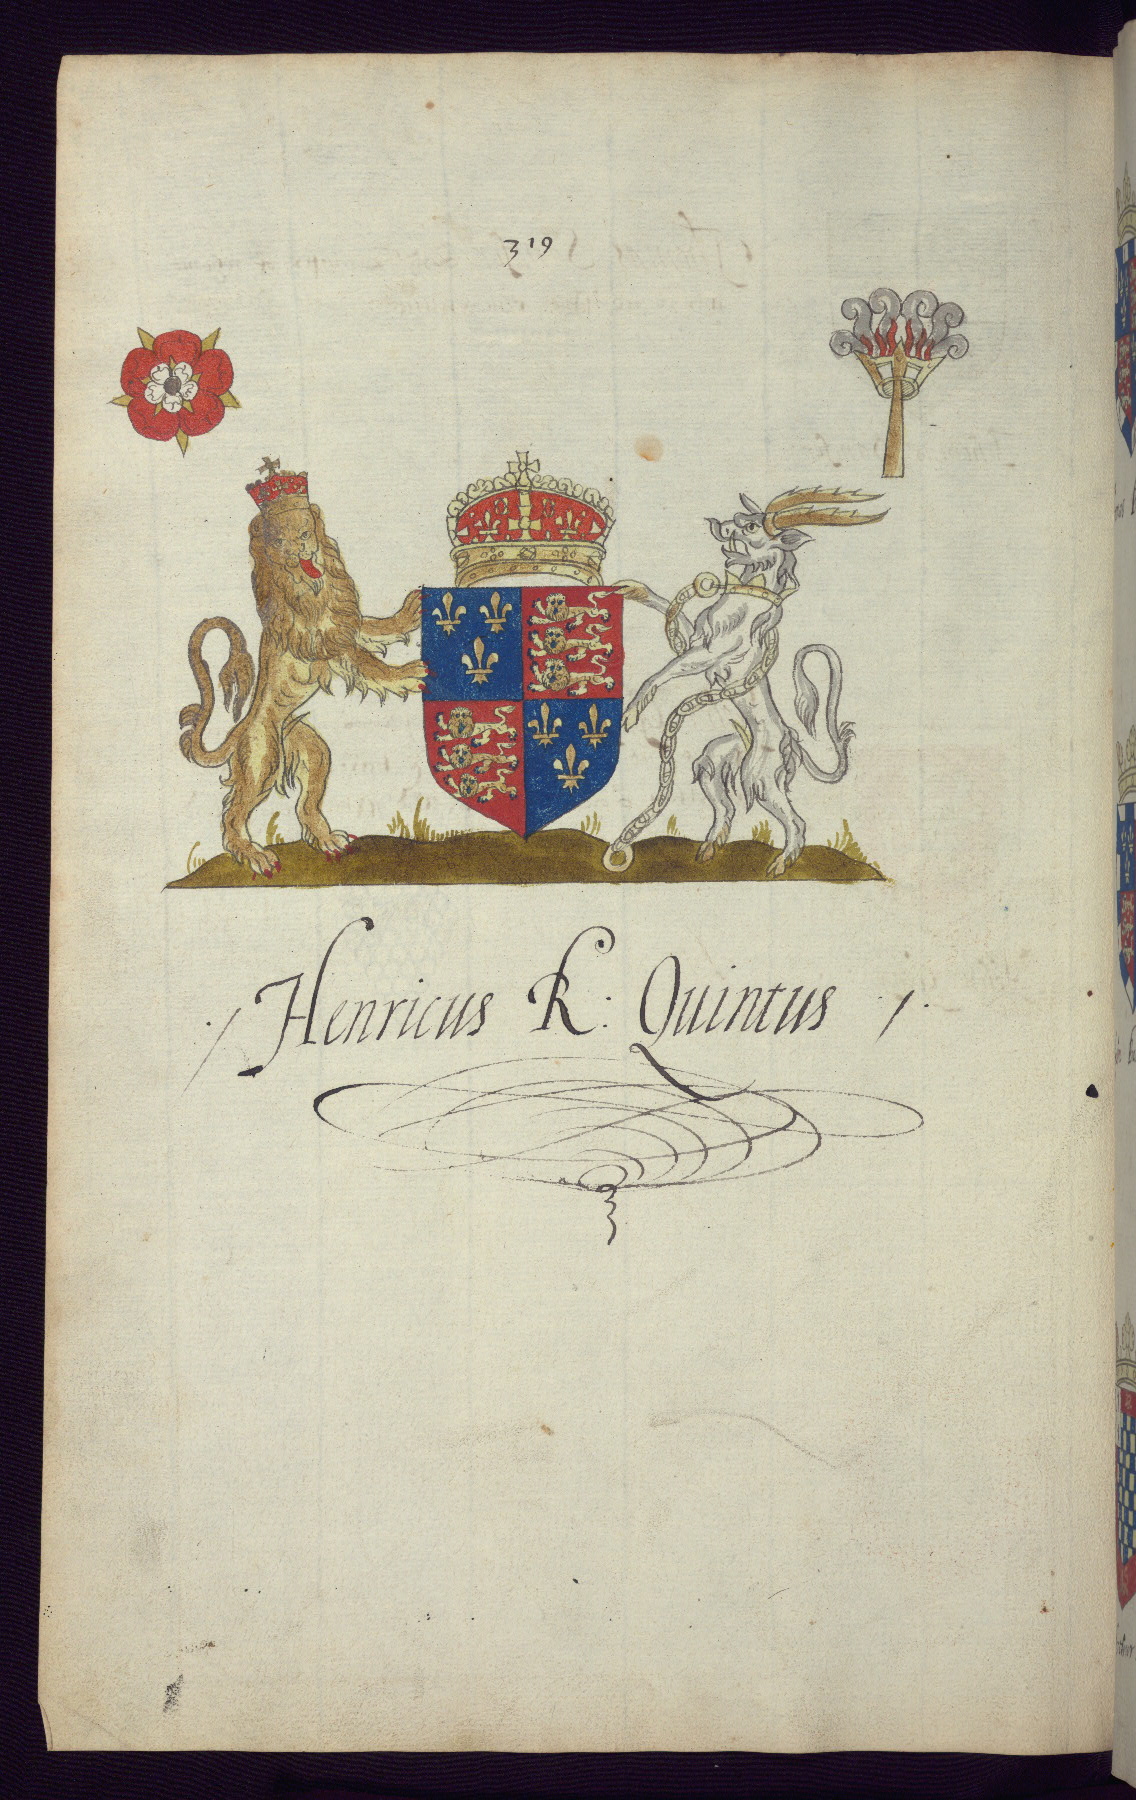 319
./ Henricus R : Quintus ./.